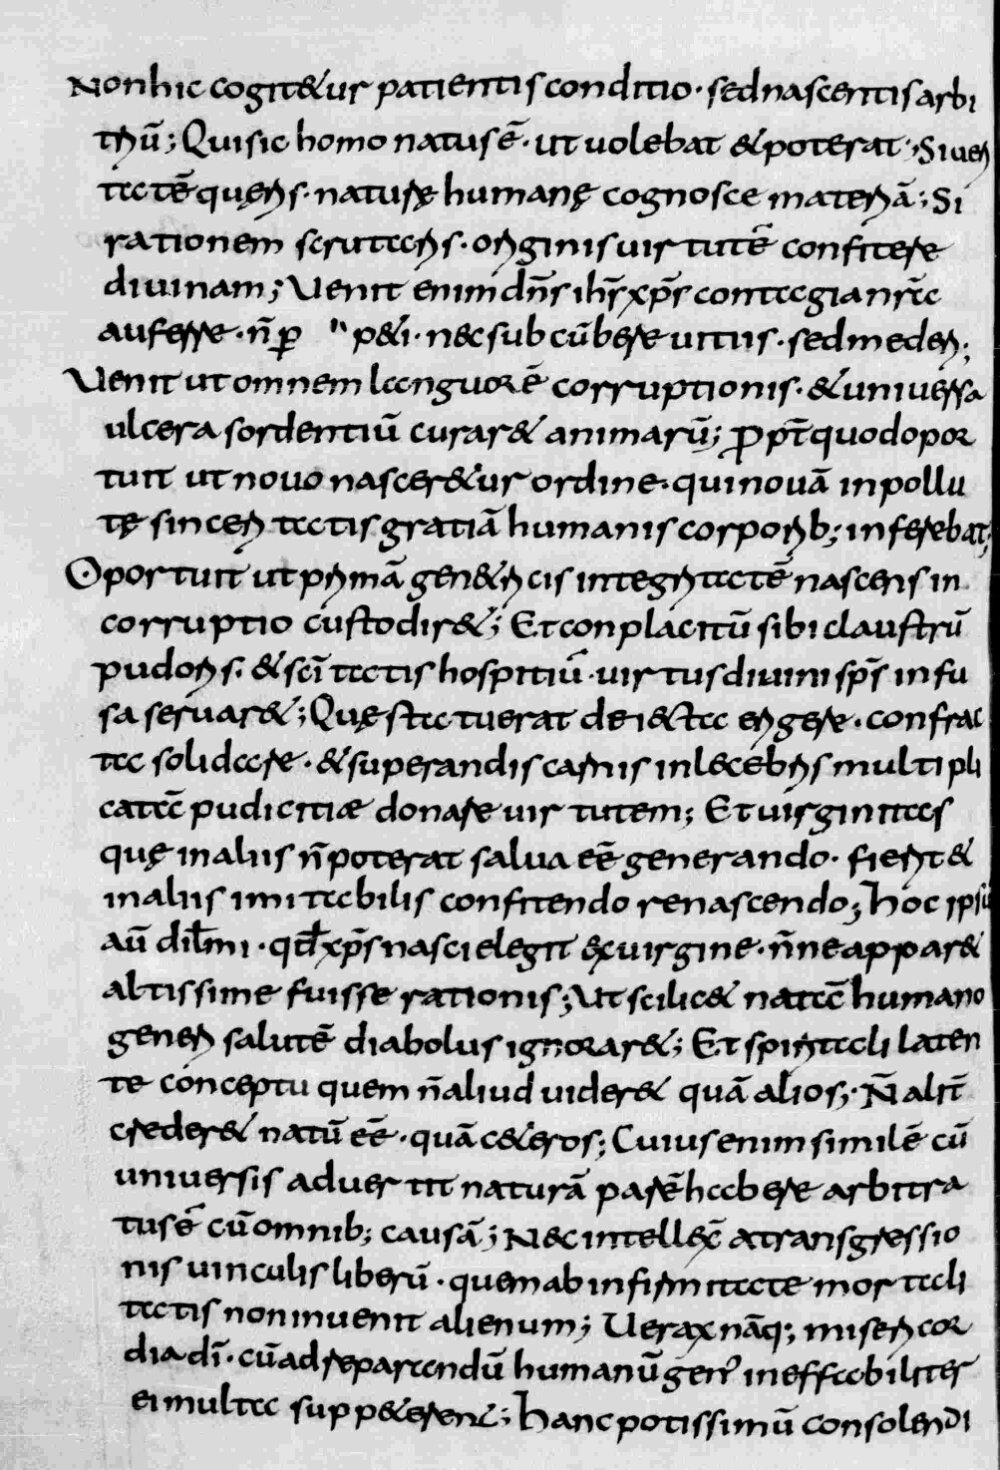 Non hic cogit&ur patientis conditio · sed nascentis arbi
triū; Qui sic homo natus ē · ut uolebat & poterat ; Si ueri
tatē queris · naturę humanę cognosce materiā ; Si
rationem scrutaris · originis uirtutē confitere
diuinam ; Uenit enim dn̄s ih̄s xp̄s contagia nr̄a
auferre · n̄ p p&i · nec sub cūbere uitiis · sed mederi ;
Uenit ut omnem languorē corruptionis · & uniuersa
ulcera sordentiū curar& animarū; ꝓpt̄ quod opor
tuit ut nouo nascer&ur ordine · qui nouā inpollu
tę sinceritatis gratiā humanis corporib; inferebat;
Oportuit ut primā gen&ricis integritatē nascens in
corruptio custodir&; Et conplacitū sibi claustrū
pudoris · & sc̄i tatis hospitiū · uirtus diuini sp̄s infu
sa seruar&; Quę statuerat deiecta erigere · confrac
ta solidare · & superandis carnis inlecebris multipli
catā pudicitiæ donare uirtutem; Et uirginitas
quę in aliis n̄ poterat salua eē generando · fier& &
in aliis imitabilis confitendo renascendo; Hoc ipsū
aū dil̄mi · qd̄ xp̄s nasci elegit ex uirgine · n̄ne appar&
altissime fuisse rationis; Ut scilic& natā humano
generi salutē diabolus ignorar&; Et spiritali laten
te conceptu quem n̄ aliud uider& quā alios; N̄ alit̄
creder& natū eē · quā c&eros; Cuius enim similē cū
uniuersis aduertit naturā parē habere arbitra
tus ē cū omnib; causā; Nec intellex̄ a transgressio
nis uinculis liberū · quem ab infirmitate mortali
tatis non inuenit alienum; Uerax nāq; misericor
dia dī · cū ad reparandū humanū gen' ineffabiliter
ei multa supp&erent; Hanc potissimū consolendi